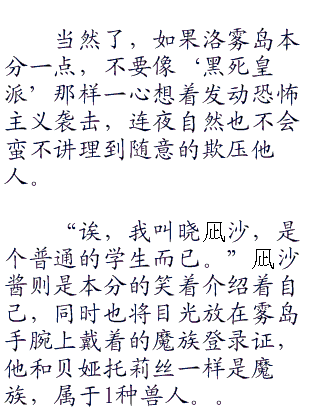 当然了，如果洛雾岛本
分一点，不要像‘黑死皇
派’那样一心想着发动恐怖
主义袭击，连夜自然也不会
蛮不讲理到随意的欺压他
人。
“诶，我叫晓凪沙，是
个普通的学生而已。”凪沙
酱则是本分的笑着介绍着自
己，同时也将目光放在雾岛
手腕上戴着的魔族登录证，
他和贝娅托莉丝一样是魔
族，属于1种兽人。。